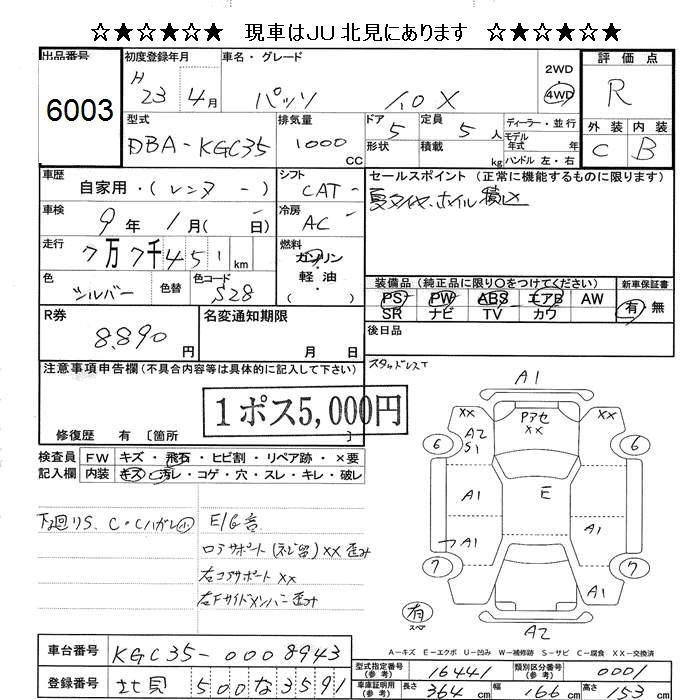 ☆★☆★☆★ 現車はJU北見にあります ☆★☆★☆★
出品番号
6003
初度登録年月
H 23 年 4月
車名・グレード
パッソ 1.0 X
2WD
4WD
評価点
R
外装 内装
C B
型式
DBA-KGC35
排気量
1000 CC
ドア 5
形状
定員 5 人
積載 kg
ディーラー・並行
モデル年式 年
ハンドル 左・右
車歴
自家用・(レンタ ー)
シフト
CAT-
セールスポイント (正常に機能するものに限ります)
夏タイヤ、ホイル積込
車検
9年 1月( ー 日)
冷房
AC-
走行
7万7千451km
燃料
ガソリン・軽油
色
シルバー
色替
色コード
S28
装備品(純正品に限り○をつけてください)
PS PW ABS エアB AW
SR ナビ TV カワ
新車保証書
有 無
R券
8,890円
名変通知期限
月 日
後日品
スタッドレスT
注意事項申告欄(不具合内容等は具体的に記入して下さい)
1ポス5,000円
修復歴 有 〔箇所 〕
検査員記入欄
FW キズ・飛石・ヒビ割・リペア跡・×要
内装 キズ・汚レ・コゲ・穴・スレ・キレ・破レ
下廻りS、C・Cハガレ小
E/G音
ロアサポート(ネジ留)XX歪み
右コアサポートXX
右Fサイドメンバー歪み
A1
XX
PアセXX
XX
A2
S1
6
6
A1
E
A1
A1
7
7
A1
有
スペア
A2
A-キズ E-エクボ U-凹み W-補修跡 S-サビ C-腐食 XX-交換済
車台番号
KGC35-0008943
登録番号
北見 500な3591
型式指定番号(参考)
16441
類別区分番号(参考)
0001
車庫証明用(参考)
長さ 364cm 幅 166cm 高さ 153cm